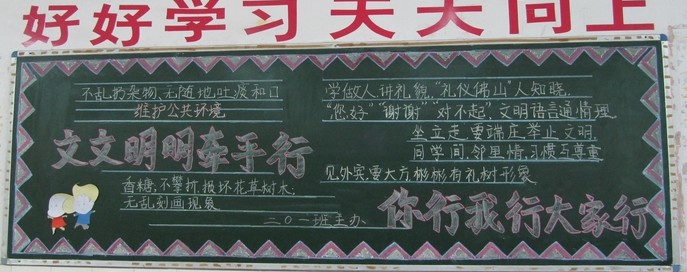 好好学习 天天向上
不乱扔杂物、无随地吐痰和口
维护公共环境
文文明明牵手行
香糖,不攀折、损坏花草树木,
无乱刻画现象
二〇一班主办
学做人,讲礼貌,"礼仪佛山"人知晓.
"您好""谢谢""对不起",文明语言通情理
坐立走,要端庄,举止文明.
同学间,邻里情,习惯互尊重
见外宾,要大方,彬彬有礼树形象
你行我行大家行